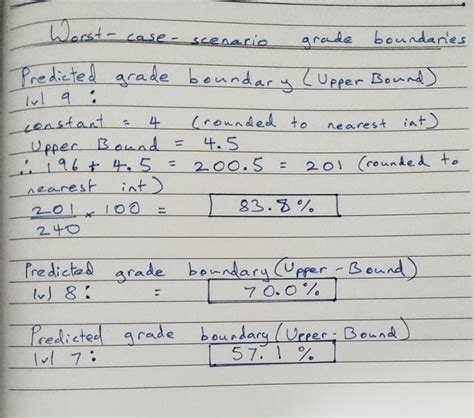 Worst-case-scenario grade boundaries
Predicted grade boundary (Upper Bound)
lvl 9 :
constant = 4 (rounded to nearest int)
Upper Bound = 4.5
∴ 196 + 4.5 = 200.5 = 201 (rounded to
nearest int)
201/240 × 100 = 83.8%
Predicted grade boundary (Upper-Bound)
lvl 8 : = 70.0%
Predicted grade boundary (Upper-Bound)
lvl 7 : 57.1 %